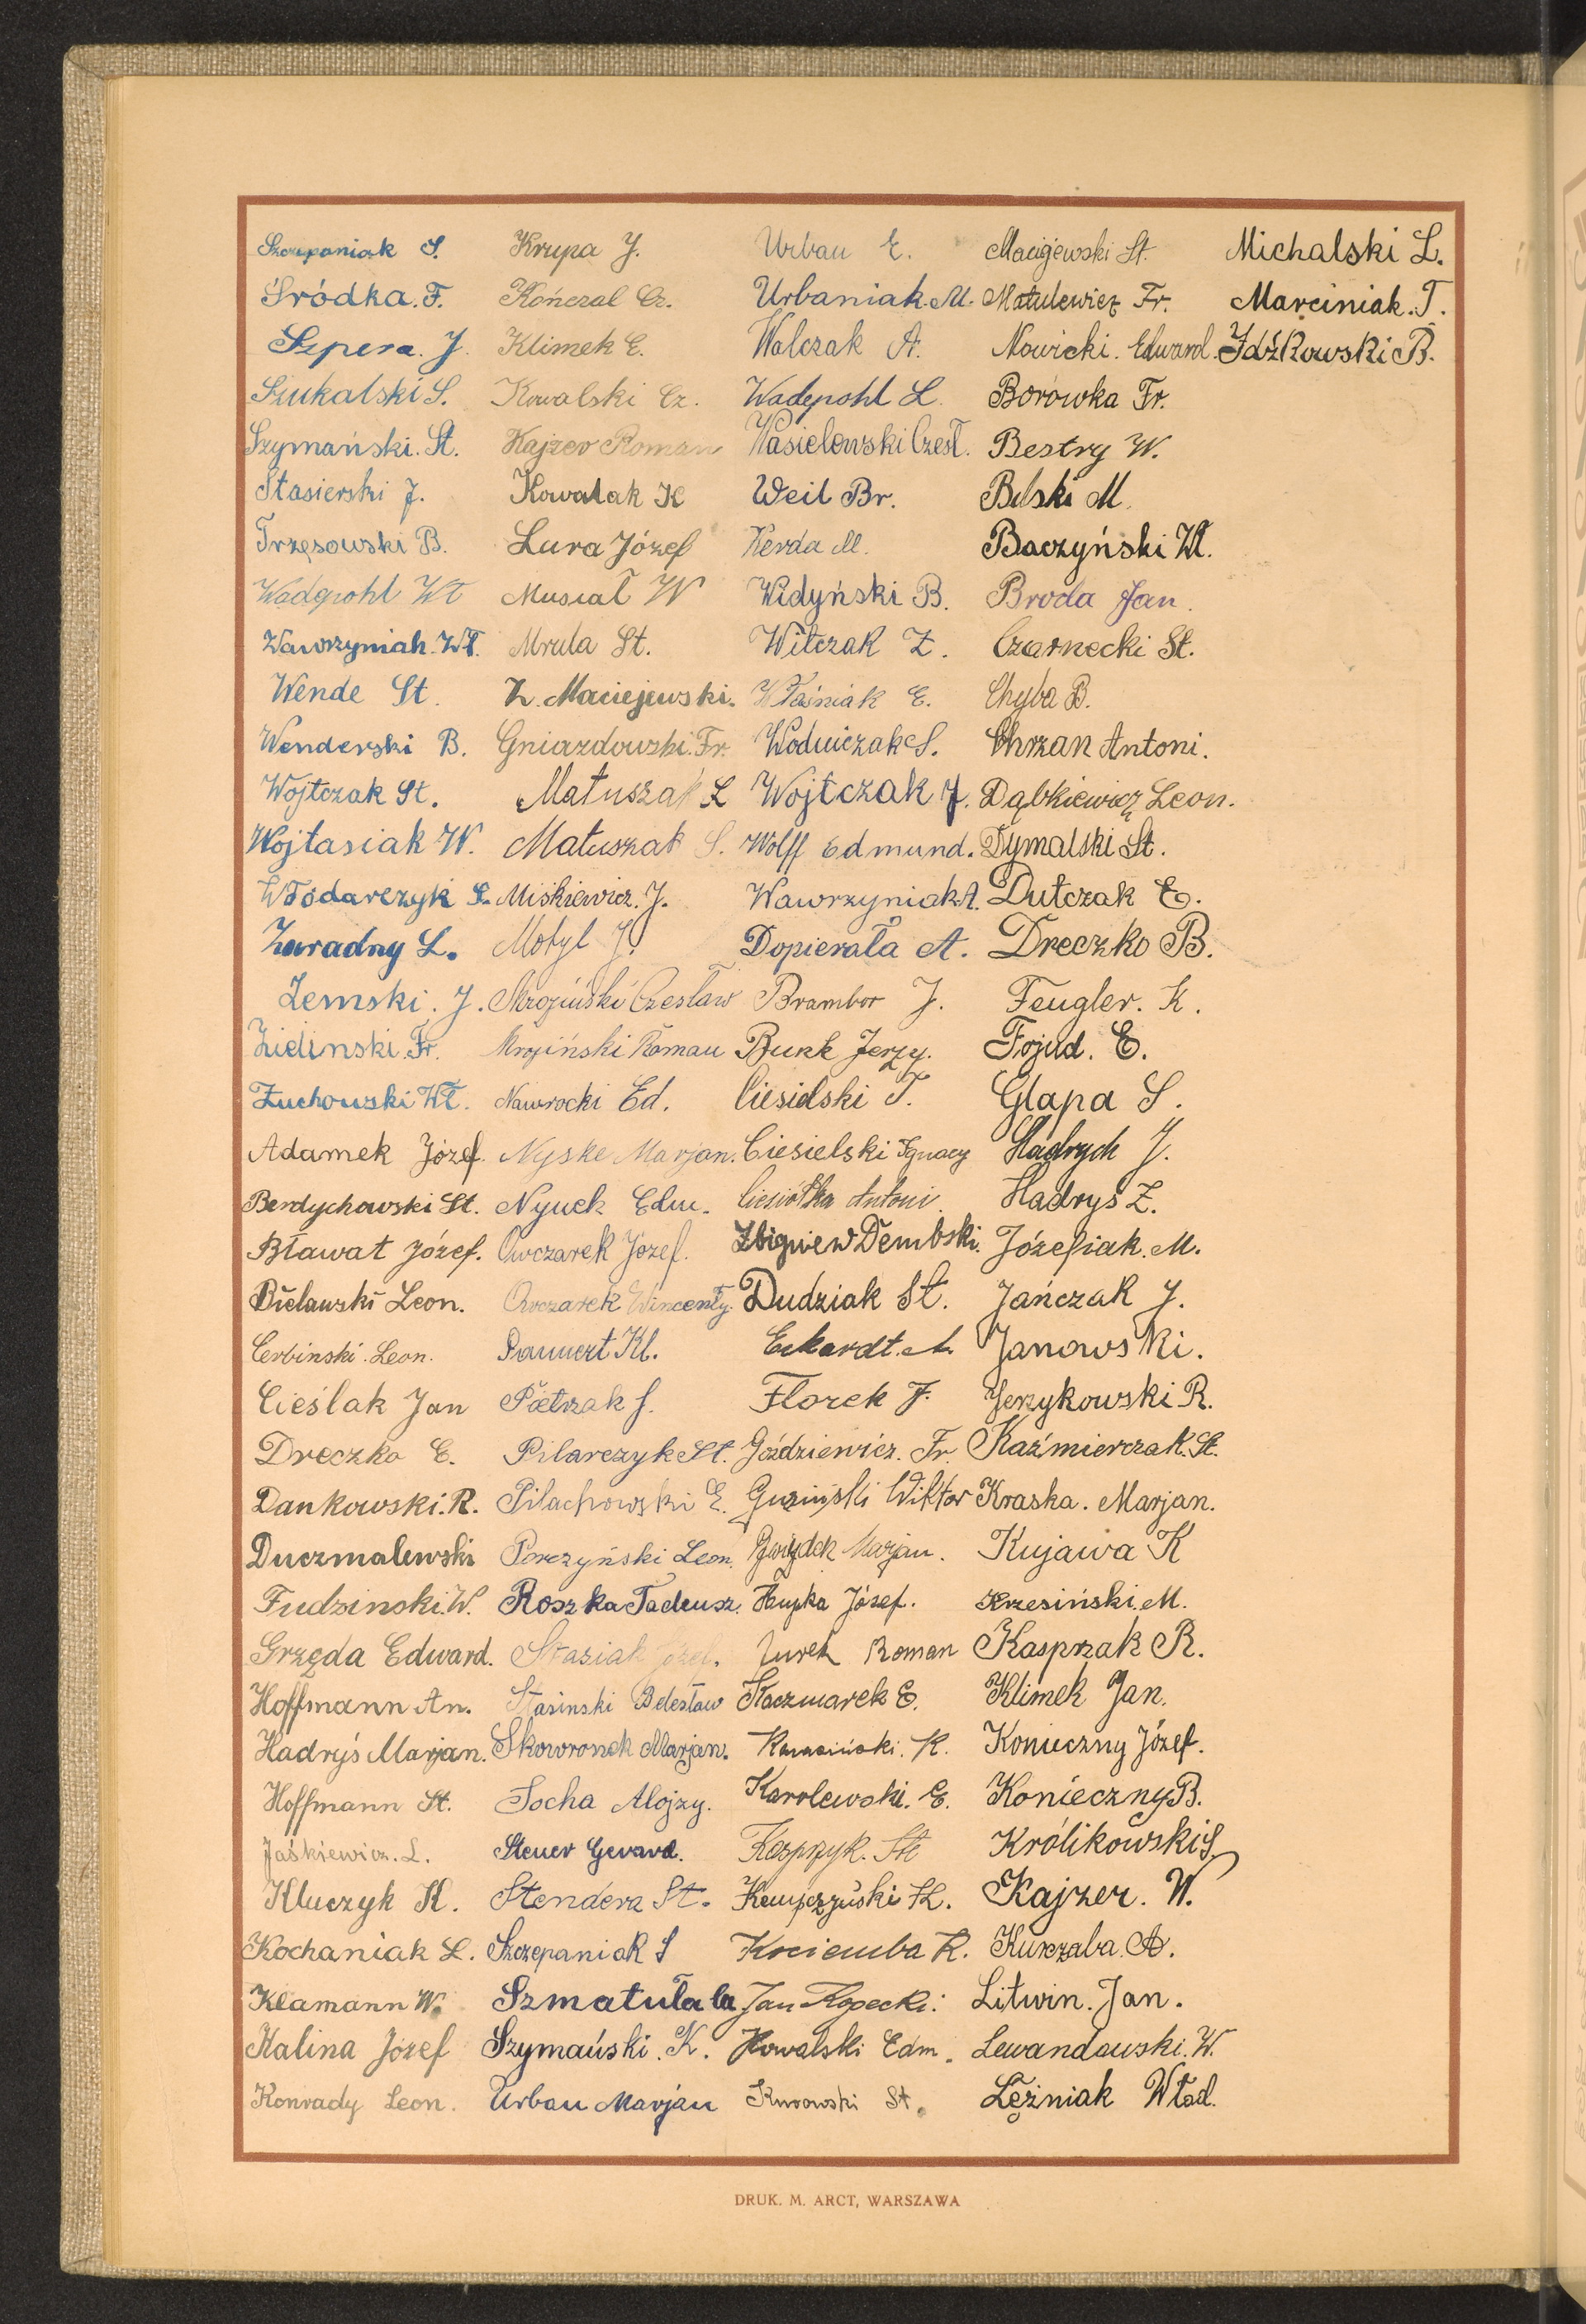 Szczepaniak S.
Śródka. F.
Szpera. J.
Szukalski S.
Szymański. St.
Stasierski J.
Trzęsowski B.
Wadepohl Wł
Wawrzyniak. Wł.
Wende St.
Wenderski B.
Wojtczak St.
Wojtasiak W.
Włodarczyk S.
Zaradny L.
Zemski. J.
Zielinski. Fr.
Żuchowski Wł.
Adamek Józef.
Berdychowski St.
Bławat Józef.
Bielawski Leon.
Cerbinski. Leon.
Cieślak Jan
Dreczko E.
Dankowski. R.
Duczmalewski
Fudzinski. W.
Grzęda Edward.
Hoffmann An.
Hadryś Marjan.
Hoffmann St.
Jaśkiewicz. L.
Kluczyk K.
Kochaniak L.
Klamann W.
Kalina Józef
Konrady Leon.
Krupa J.
Kończal Cz.
Klimek E.
Kowalski Cz.
Kajzer Roman
Kowalak K
Lura Józef
Musiał W
Mrula St.
Z. Maciejewski.
Gniazdowski. Fr.
Matuszak L
Matuszak S.
Miśkiewicz. J.
Motyl J.
Mroziński Czesław
Mroziński Roman
Nawrocki Ed.
Nyske Marjan.
Nyuek Edm.
Owczarek Józef.
Owczarek Wincenty.
Pannert Kl.
Pietrzak J.
Pilarczyk St.
Pilachowski E.
Porczyński Leon.
Roszka Tadeusz.
Stasiak Józef.
Stasinski Bolesław
Skowronek Marjan.
Socha Alojzy.
Steuer Gerard.
Stendera St.
Szczepaniak S
Szmatuła la
Szymański. K.
Urban Marjan
Urban E.
Urbaniak. M.
Walczak A.
Wadepohl L.
Wasielewski Czesł.
Weil Br.
Kerda M.
Widyński B.
Witczak Z.
Właśniak E.
Wodniczak S.
Wojtczak J.
Wolff Edmund.
Wawrzyniak. A.
Dopierała A.
Brambor J.
Bunk Jerzy.
Ciesielski T.
Ciesielski Ignacy
Ciesiołka Antoni.
Zbigniew Dembski.
Dudziak St.
Eckardt. A.
Florek F.
Goździewicz. Fr.
Guziński Wiktor
Gwizdek Marjan.
Hupka Józef.
Jurek Roman
Kaczmarek E.
Karasiński. K.
Karolewski. E.
Kasprzyk. St
Kempczyński St.
Krciemba R.
Jan Kopecki.
Kowalski Edm.
Kurowski St.
Maciejewski St.
Matulewicz Fr.
Nowicki. Edward.
Borówka Fr.
Bestry W.
Bilski M.
Baczyński Wł.
Broda Jan.
Czarnecki St.
Chyba B.
Chrzan Antoni.
Dąbkiewicz Leon.
Dymalski St.
Dutczak E.
Dreczko B.
Feugler. K.
Fojud. E.
Glapa S.
Hadrych J.
Hadryś Z.
Józefiak. M.
Jańczak J.
Janowski.
Jerzykowski R.
Kaźmierczak. St.
Kraska. Marjan.
Kujawa K
Krzesiński. M.
Kasprzak R.
Klimek Jan.
Konieczny Józef.
Konieczny B.
Królikowski S.
Kajzer. W.
Kurzaba. A.
Litwin. Jan.
Lewandowski. W.
Leżniak Wład.
Michalski L.
Marciniak. T.
Idźkowski B.
DRUK. M. ARCT, WARSZAWA